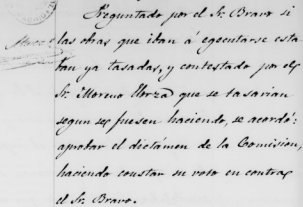 Preguntado por el Sr. Bravo si
las obras que iban á egecutarse esta
ban ya tasadas, y contestado por el
Sr. Moreno que se tasarian
segun se fuesen haciendo, se acordó:
aprobar el dictámen de la Comision,
haciendo constar su voto en contra
el Sr. Bravo.